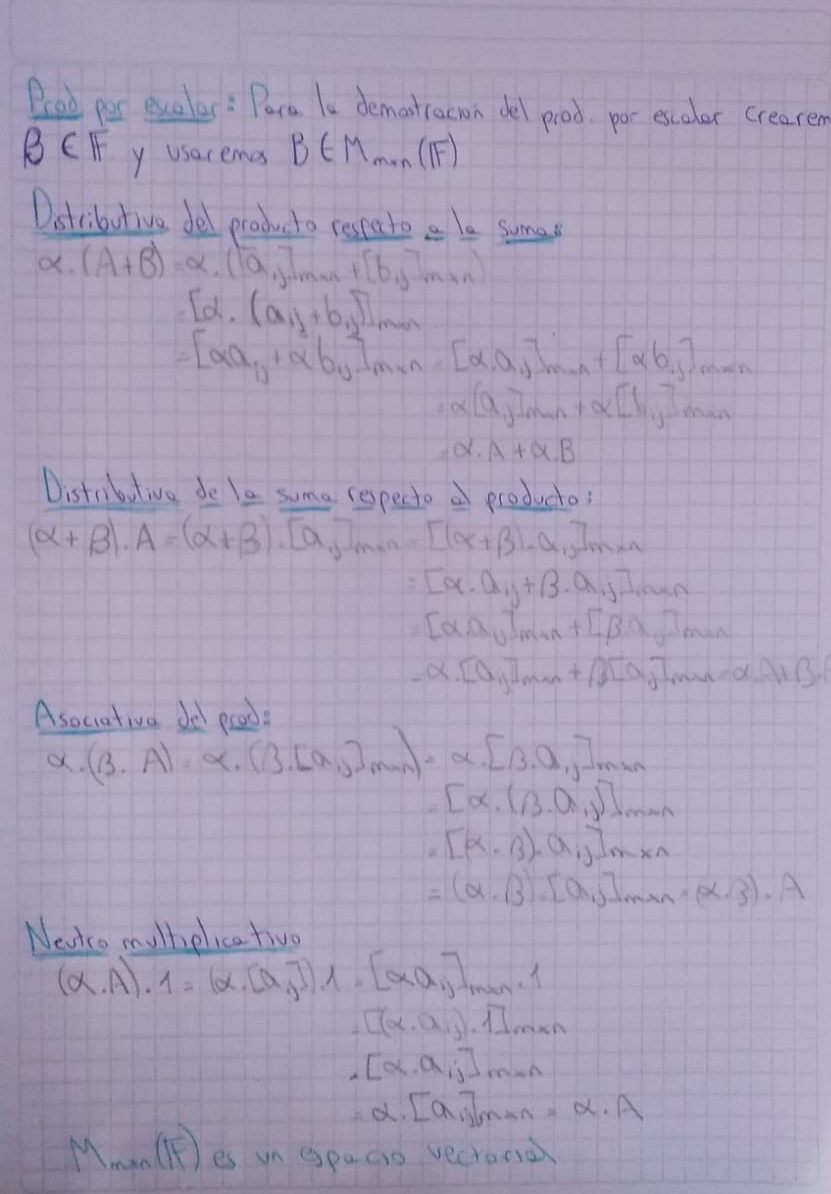 Prod por escalar: Para la demostración del prod. por escalar crearem
β ∈ F y usaremos B ∈ Mmxn(F)
Distributiva del producto respecto a la suma:
α.(A+B) = α.([aij]mxn + [bij]mxn)
= [α.(aij+bij)]mxn
= [αaij + αbij]mxn = [α.aij]mxn + [αbij]mxn
= α[aij]mxn + α[bij]mxn
= α.A + α.B
Distributiva de la suma respecto al producto:
(α+β).A = (α+β).[aij]mxn = [(α+β).aij]mxn
= [α.aij + β.aij]mxn
= [α.aij]mxn + [β.aij]mxn
= α.[aij]mxn + β[aij]mxn = α.A+β.
Asociativa del prod:
α.(β.A) = α.(β.[aij]mxn) = α.[β.aij]mxn
= [α.(β.aij)]mxn
= [(α.β).aij]mxn
= (α.β).[aij]mxn = (α.β).A
Neutro multiplicativo
(α.A).1 = (α.[aij]).1 = [αaij]mxn.1
= [(α.aij).1]mxn
= [α.aij]mxn
= α.[aij]mxn = α.A
Mmxn(F) es un espacio vectorial